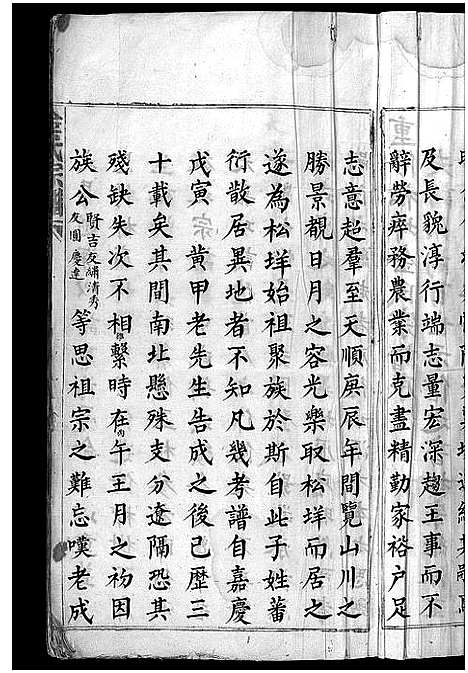 及長貌淳行端志量宏深趨王事而不
辭勞瘁務農業而克盡精勤家裕户足
志意超羣至天順庚辰年間覽山川之
勝景覩日月之容光樂取松垟而居之
遂為松垟始祖聚族於斯自此子姓蕃
衍散居異地者不知凡幾考譜自嘉慶
戊寅 黄甲老先生告成之後已歷三
十載矣其間南北懸殊支分遼隔恐其
殘缺失次不相聯繫時在丙午王月之初因
族公賢吉友繡清秀友圖慶達等思祖宗之難忘嘆老成